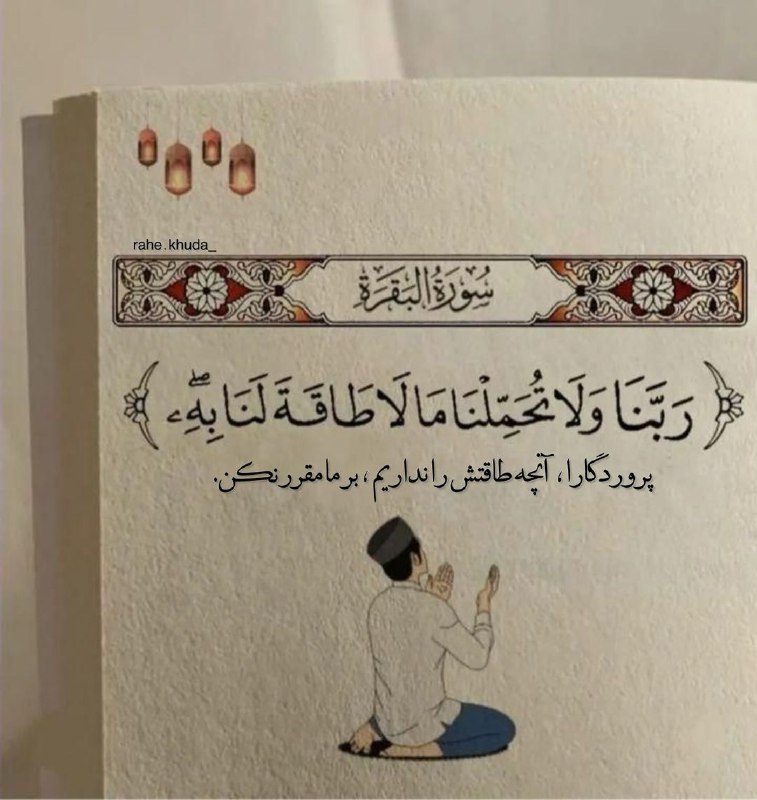 rahe.khuda_
سُورَةُ البَقَرَةِ
﴿رَبَّنَا وَلَا تُحَمِّلْنَا مَا لَا طَاقَةَ لَنَا بِهِۦۖ﴾
پروردگارا، آنچه طاقتش را نداریم، بر ما مقرر نکن.